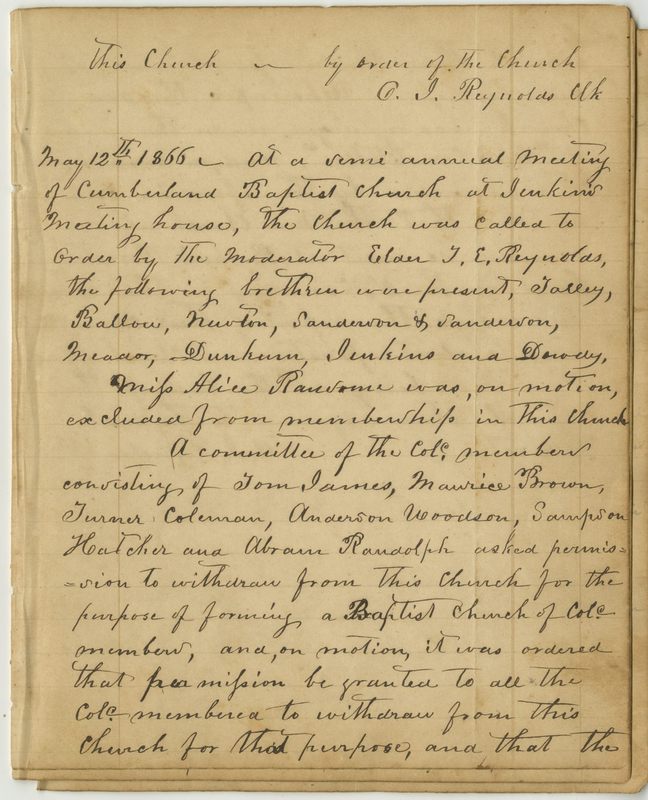 This Church ~ by order of the Church
O. J. Reynolds Clk
May 12th 1866 ~ At a semi annual Meeting
of Cumberland Baptist Church at Jenkins
Meeting house, the Church was called to
Order by the Moderator Elder T. E. Reynolds,
the following brethren were present, Talley,
Ballow, Newton, Sanderson & Sanderson,
Meador, Dunkum, Jenkins and Dowdy,
Miss Alice Ransome was, on motion,
excluded from membership in this Church
A committee of the Cold. members
consisting of Tom James, Maurice Brown,
Turner Coleman, Anderson Woodson, Sampson
Hatcher and Abram Randolph asked permis=
=sion to withdraw from this Church for the
purpose of forming a Baptist Church of Cold.
members, and, on motion, it was ordered
that permission be granted to all the
Cold. membered to withdraw from this
Church for that purpose, and that the